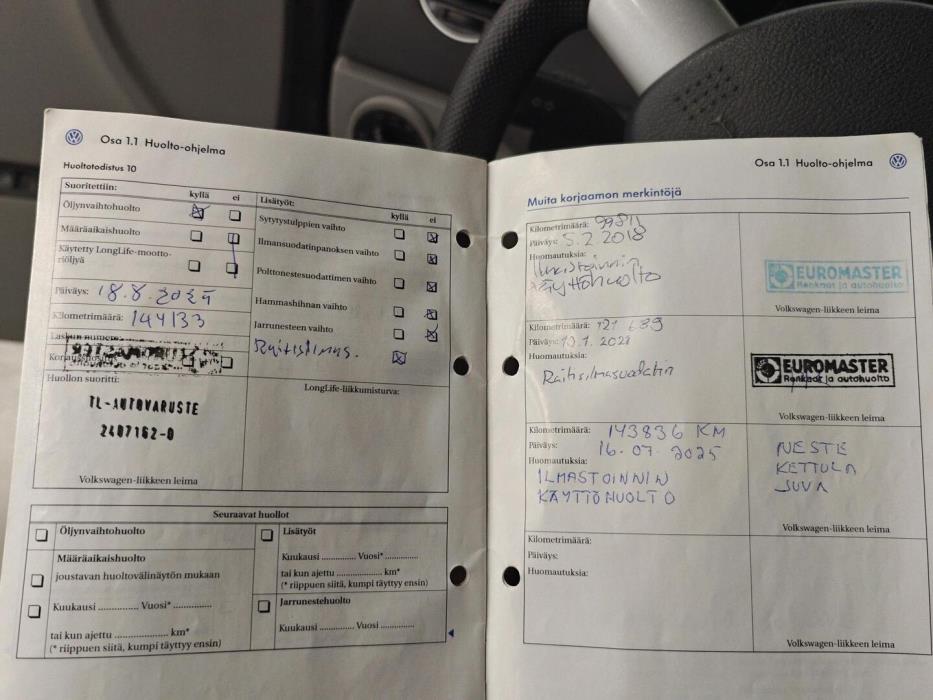 Osa 1.1 Huolto-ohjelma
Huoltotodistus 10
Suoritettiin:
kyllä ei
Öljynvaihtohuolto
Määräaikaishuolto
Käytetty LongLife-mootto-
riöljyä
Päiväys: 18.8.2025
Kilometrimäärä: 144133
Laskun numero:
Huollon suoritti:
TL-AUTOVARUSTE
2407162-0
Volkswagen-liikkeen leima
Lisätyöt:
kyllä ei
Sytytystulppien vaihto
Ilmansuodatinpanoksen vaihto
Polttonestesuodattimen vaihto
Hammashihnan vaihto
Jarrunesteen vaihto
Raitisilmas.
LongLife-liikkumisturva:
Seuraavat huollot
Öljynvaihtohuolto
Määräaikaishuolto
joustavan huoltovälinäytön mukaan
Kuukausi .............. Vuosi* ..............
tai kun ajettu .................... km*
(* riippuen siitä, kumpi täyttyy ensin)
Lisätyöt
Kuukausi ............ Vuosi* ............
tai kun ajettu .................... km*
(* riippuen siitä, kumpi täyttyy ensin)
Jarrunestehuolto
Kuukausi ............ Vuosi ............
Osa 1.1 Huolto-ohjelma
Muita korjaamon merkintöjä
Kilometrimäärä: 99811
Päiväys: 5.2.2018
Huomautuksia:
Ilmastoinnin
käyttöhuolto
EUROMASTER
Renkaat ja autohuolto
Volkswagen-liikkeen leima
Kilometrimäärä: 121 689
Päiväys:
Huomautuksia:
Raitisilmasuodatin
EUROMASTER
Renkaat ja autohuolto
Volkswagen-liikkeen leima
Kilometrimäärä: 143836 KM
Päiväys: 16.07.2025
Huomautuksia:
ILMASTOINNIN
KÄYTTÖHUOLTO
NESTE
KETTULA
JUVA
Volkswagen-liikkeen leima
Kilometrimäärä:
Päiväys:
Huomautuksia:
Volkswagen-liikkeen leima